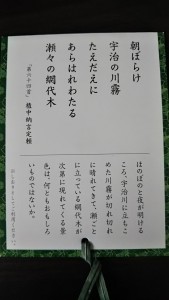 朝ぼらけ
宇治の川霧
たえだえに
あらはれわたる
瀬々の網代木
「第六十四首」権中納言定頼
ほのぼのと夜が明ける
ころ、宇治川に立ちこ
めた川霧が切れ切れ
に晴れてきて、瀬ごと
に立っている網代木が
次第に現れてくる景
色は、何ともおもしろ
いものではないか。